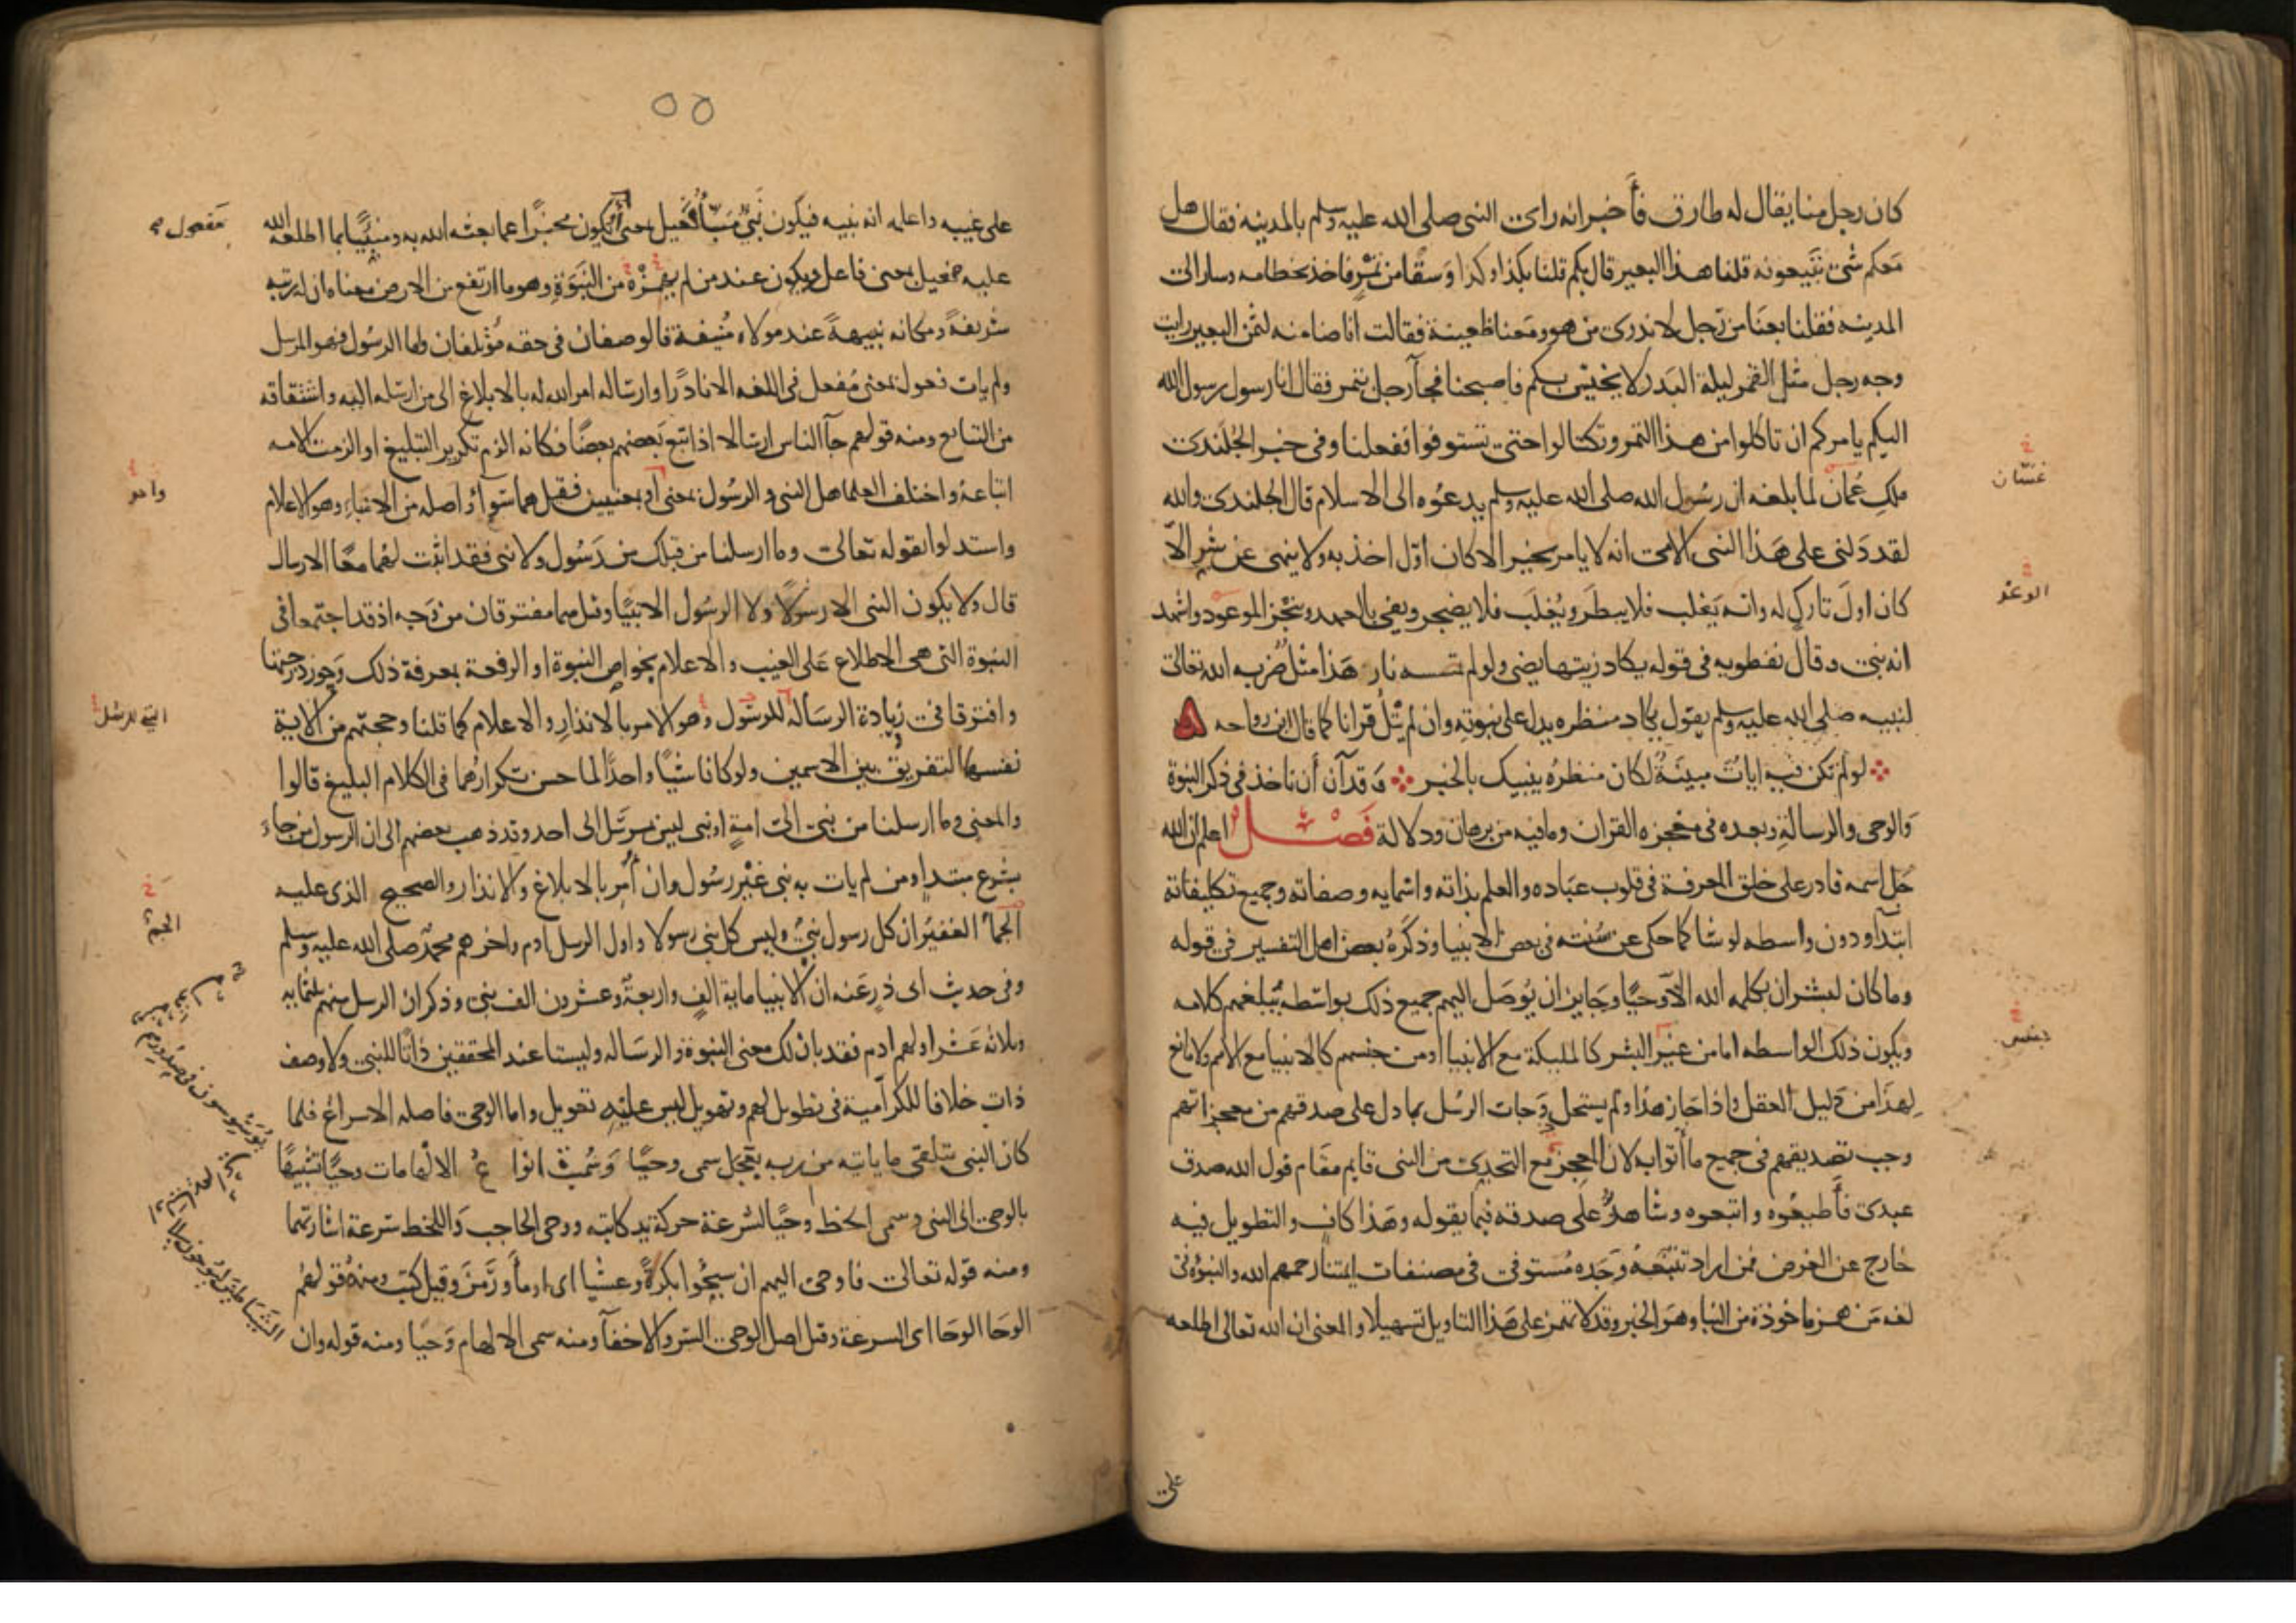 كان رجل منا يقال له طارق فأخبر انه راى النبى صلى الله عليه وسلم بالمدينه فقال هل
معكم شى تبيعونه قلنا هذا البعير قال بكم قلنا بكذا وكذا وسقا من تمر فاخذ بخطامه وسار الى
المدينه فقلنا بعنا من رجل لا ندرى من هو ومعنا ظعينة فقالت انا ضامنه لثمن البعير رايت
وجه رجل مثل القمر ليلة البدر لا يخيس بكم فاصبحنا فجآ رجل بتمر فقال انا رسول رسول الله
اليكم يامركم ان تاكلوا من هذا التمر وتكتالوا حتى تستوفوا ففعلنا وفى خبر الجلندى
ملك عمان لما بلغه ان رسول الله صلى الله عليه وسلم يدعوه الى الاسلام قال الجلندى والله
لقد دلنى على هذا النبى الامى انه لا يامر بخير الا كان اول اخذ به ولا ينهى عن شر الا
كان اول تارك له وانه يغلب فلا يبطر ويغلب فلا يضجر ويفى بالعهد وينجز الموعود واشهد
انه نبى وقال نفطويه فى قوله يكاد زيتها يضى ولو لم تمسسه نار هذا مثل ضربه الله تعالى
لنبيه صلى الله عليه وسلم يقول يكاد منظره يدل على نبوته وان لم يتل قرانا كما قال ابن رواحه
لو لم تكن فيه ايات مبينة لكان منظره ينبيك بالخبر وقد آن أن ناخذ فى ذكر النبوة
والوحى والرسالة وبعده فى معجزه القران وما فيه من برهان ودلالة فصل اعلم ان الله
جل اسمه قادر على خلق المعرفة فى قلوب عباده والعلم بذاته واسمايه وصفاته وجميع تكليفاته
ابتدآ ودون واسطه لو شا كما حكى عن سنته فى بعض الانبيا وذكره بعض اهل التفسير فى قوله
وما كان لبشر ان يكلمه الله الا وحيا وجايز ان يوصل اليهم جميع ذلك بواسطه تبلغهم كلامه
ويكون ذلك الواسطه اما من غير البشر كالمليكة مع الانبيا او من جنسهم كالانبيا مع الامم ولا مانع
لهذا من دليل العقل واذا جاز هذا ولم يستحل وجات الرسل بما دل على صدقهم من معجزاتهم
وجب تصديقهم فى جميع ما أتوا به لان المعجز مع التحدى من النبى قايم مقام قول الله صدق
عبدى فأطيعوه واتبعوه وشاهد على صدقه فيما يقوله وهذا كاف والتطويل فيه
خارج عن الغرض فمن اراد تتبعه وجده مستوفى فى مصنفات ايمتنا رحمهم الله والنبوة فى
لغه من همز ماخوذة من النبا وهو الخبر وقد لا تهمز على هذا التاويل تسهيلا والمعنى ان الله تعالى اطلعه
على
غسّان
الوعد
بعض
٥٥
على غيبه واعلمه انه نبيه فيكون نبى منبأ فعيل بمعنى او يكون مخبرا عما بعثه الله به ومنبيا بما اطلعه الله
عليه فعيل بمعنى فاعل ويكون عند من لم يهمزه من النبوة وهو ما ارتفع من الارض معناه ان له رتبه
شريفة ومكانه نبيهة عند مولاه منيفة فالوصفان فى حقه مؤتلفان واما الرسول فهو المرسل
ولم يات فعول بمعنى مفعل فى اللغه الا نادرا وارساله امر الله له بالابلاغ الى من ارسله اليه واشتقاقه
من التتابع ومنه قولهم جآ الناس ارسالا اذا تبع بعضهم بعضا فكانه الزم تكرير التبليغ او الزمت الامه
اتباعه واختلف العلما هل النبى والرسول بمعنى او بمعنيين فقيل هما سوآ واصله من الانباء وهو الاعلام
واستدلوا بقوله تعالى وما ارسلنا من قبلك من رسول ولا نبى فقد اثبت لهما معا الارسال
قال ولا يكون النبى الا رسولا ولا الرسول الا نبيا وقيل هما مفترقان من وجه اذ قد اجتمعا فى
النبوة التى هى الاطلاع على الغيب والاعلام بخواص النبوة او الرفعة بمعرفة ذلك وحوز درجتها
وافترقا فى زيادة الرساله للرسول وهو الامر بالانذار والاعلام كما قلنا وحجتهم من الاية
نفسها التفريق بين الاسمين ولو كانا شيا واحدا لما حسن تكرارهما فى الكلام البليغ قالوا
والمعنى وما ارسلنا من نبى الى امة او نبى ليس بمرسل الى احد وقد ذهب بعضهم الى ان الرسول من جاء
بشرع مبتدا ومن لم يات به نبى غير رسول وان أمر بالابلاغ والانذار والصحيح الذى عليه
الجمآ الغفير ان كل رسول نبى وليس كل نبى رسولا واول الرسل ادم واخرهم محمد صلى الله عليه وسلم
وفى حديث ابى ذر عنه ان الانبيا ماية الف واربعة وعشرون الف نبى وذكر ان الرسل منهم ثلثمايه
وثلاثه عشر اولهم ادم فقد بان لك معنى النبوة والرساله وليستا عند المحققين ذاتا للنبى ولا وصف
ذات خلافا للكرامية فى تطويل لهم وتهويل ليس عليه تعويل واما الوحى فاصله الاسراع فلما
كان النبى يتلقى ما ياتيه من ربه بعجل سمى وحيا وسميت انواع الالهامات وحيا تشبيها
بالوحى الى النبى وسمى الخط وحيا لسرعة حركة يد كاتبه ووحى الحاجب واللحظ سرعة اشارتهما
ومنه قوله تعالى فاوحى اليهم ان سبحوا بكرة وعشيا اى اومأ ورمز وقيل كتب ومنه قولهم
الوحا الوحا اى السرعة وقيل اصل الوحى السر والاخفآ ومنه سمى الالهام وحيا ومنه قوله وان
مفعول
واحد
الجم